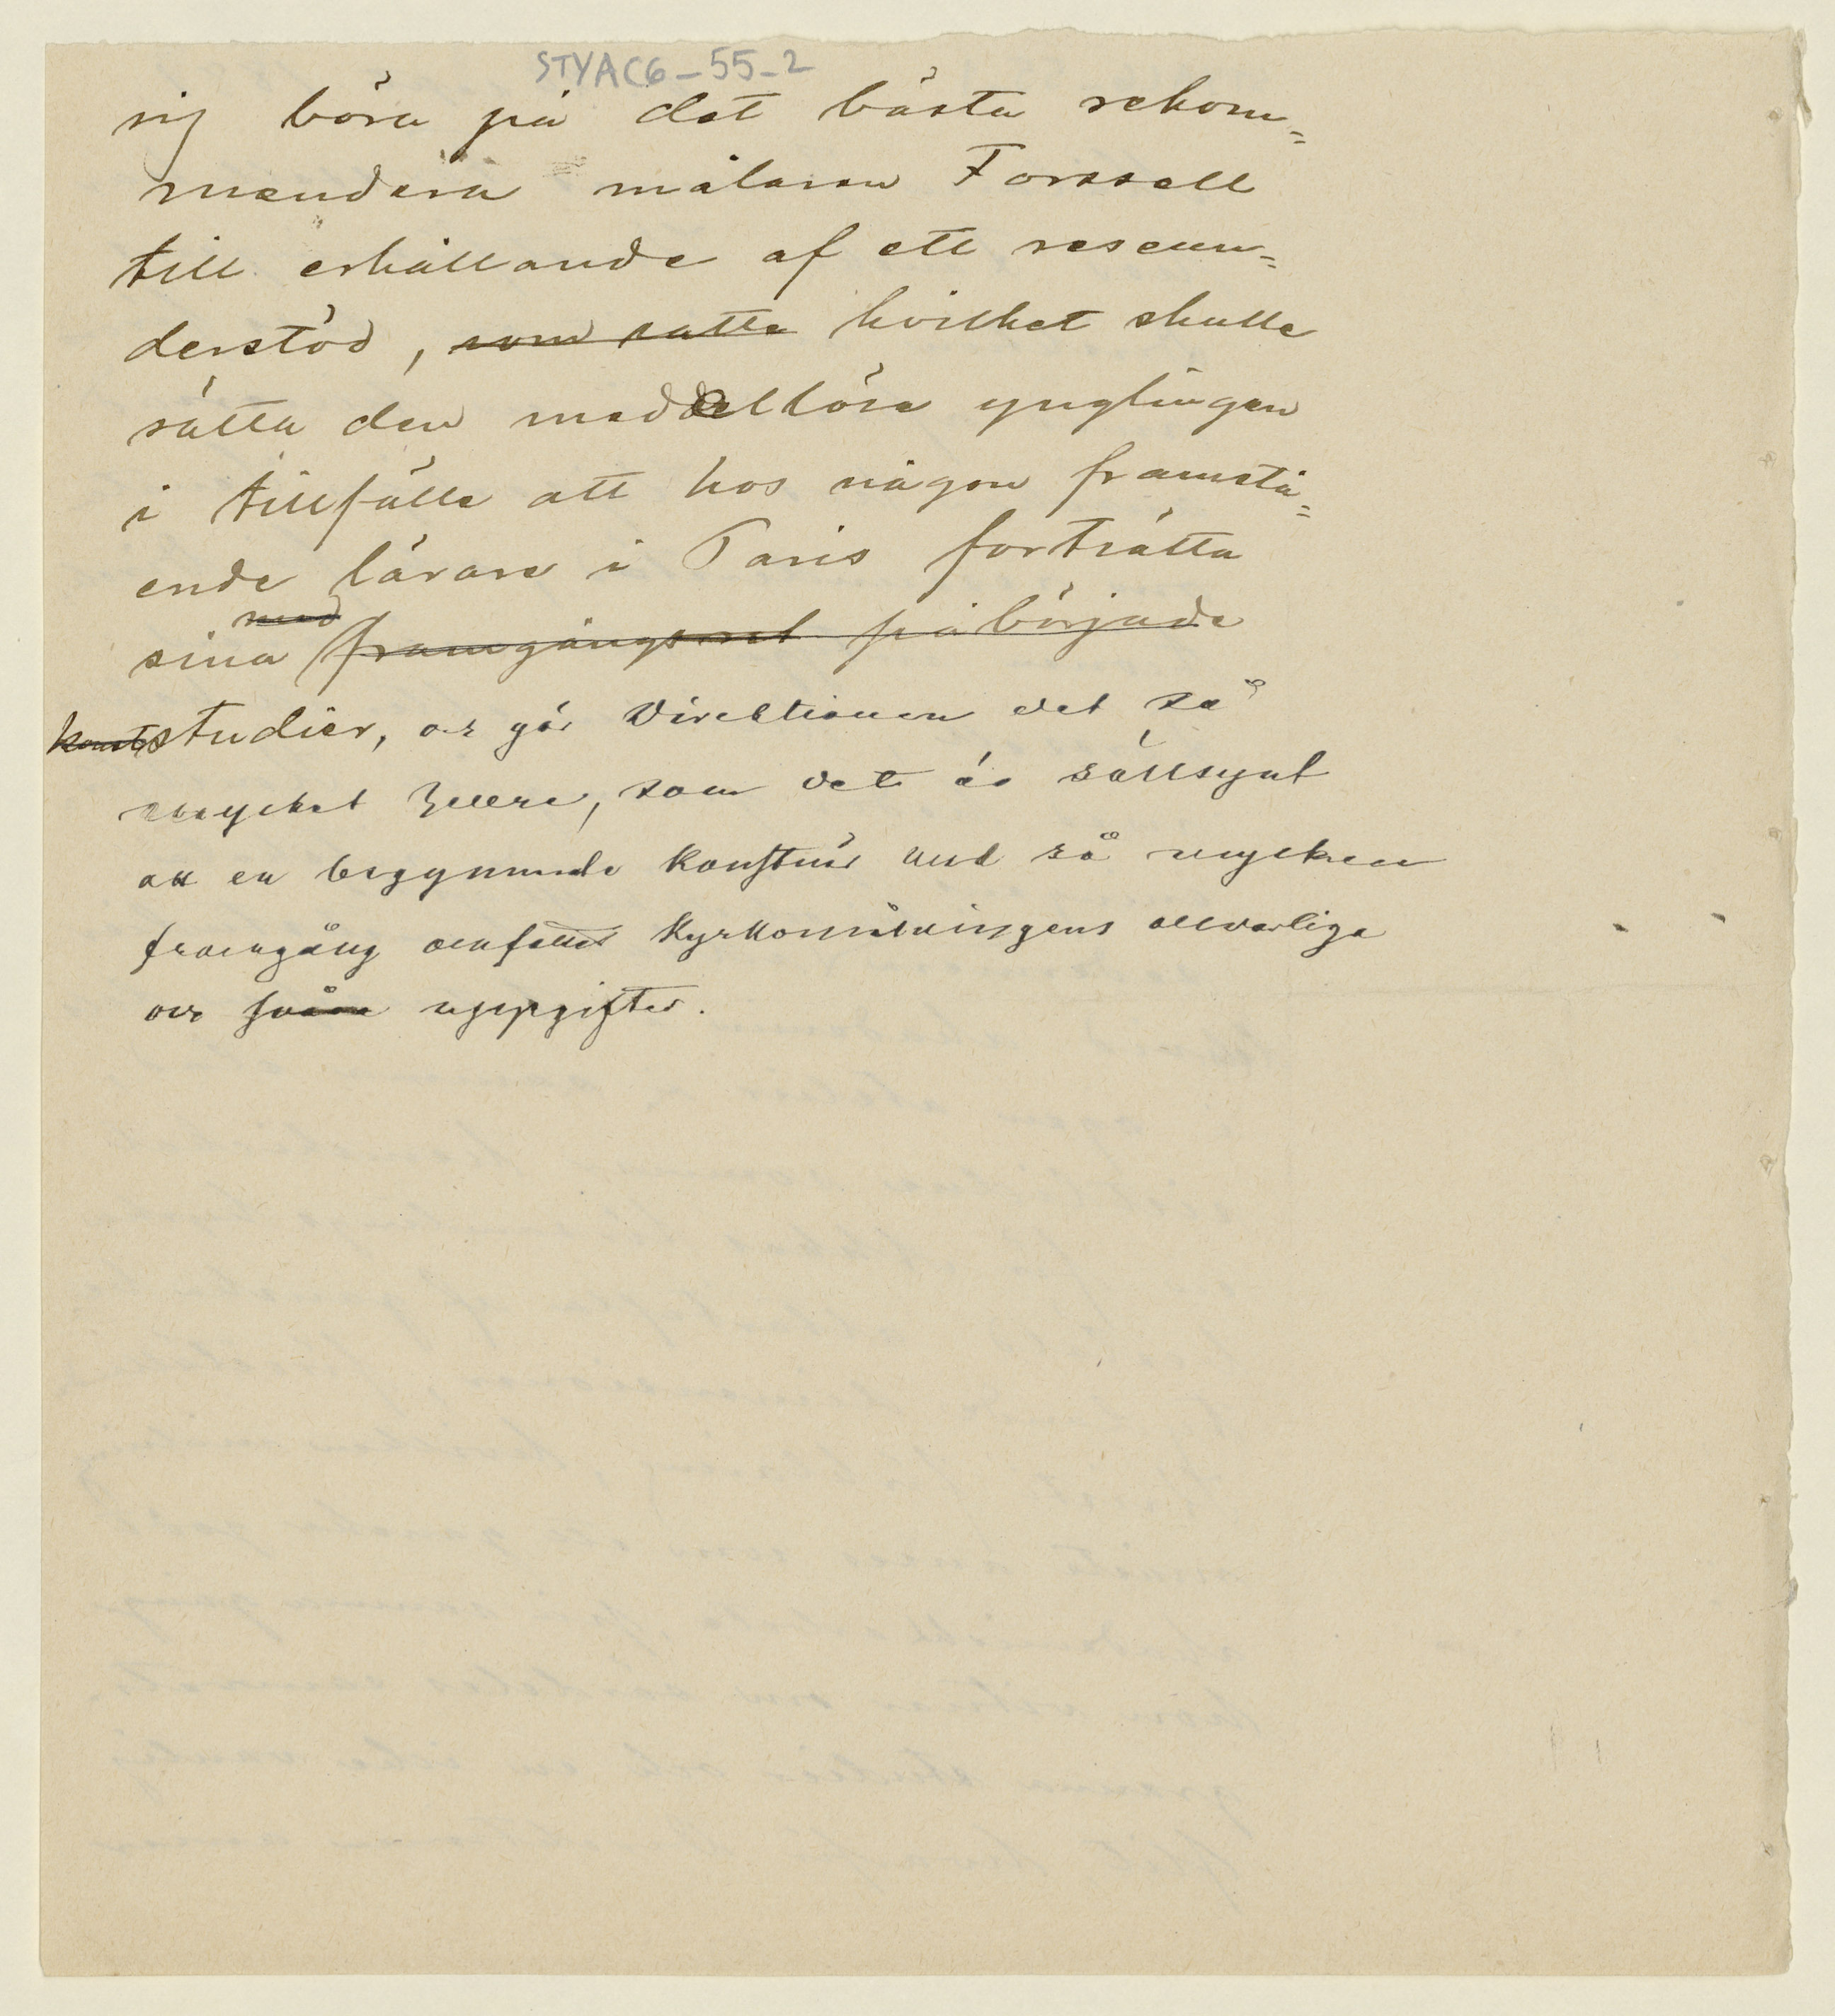 STYAC6-55-2
sig böra på det bästa rekom=
mendera målaren Forssell
till erhållande af ett reseun=
derstöd, som satte hvilket skulle
sätta den meddellöse ynglingen
i tillfälle att hos någon framstå=
ende lärare i Paris fortsätta
med
sina framgångsrikt påbörjade
konststudier, och gör Direktionen det så
mycket hellre, som det är sällsynt
att en begynnande konstnär med så mycken
framgång omfattat kyrkomålningens allvarliga
och svåra uppgifter.